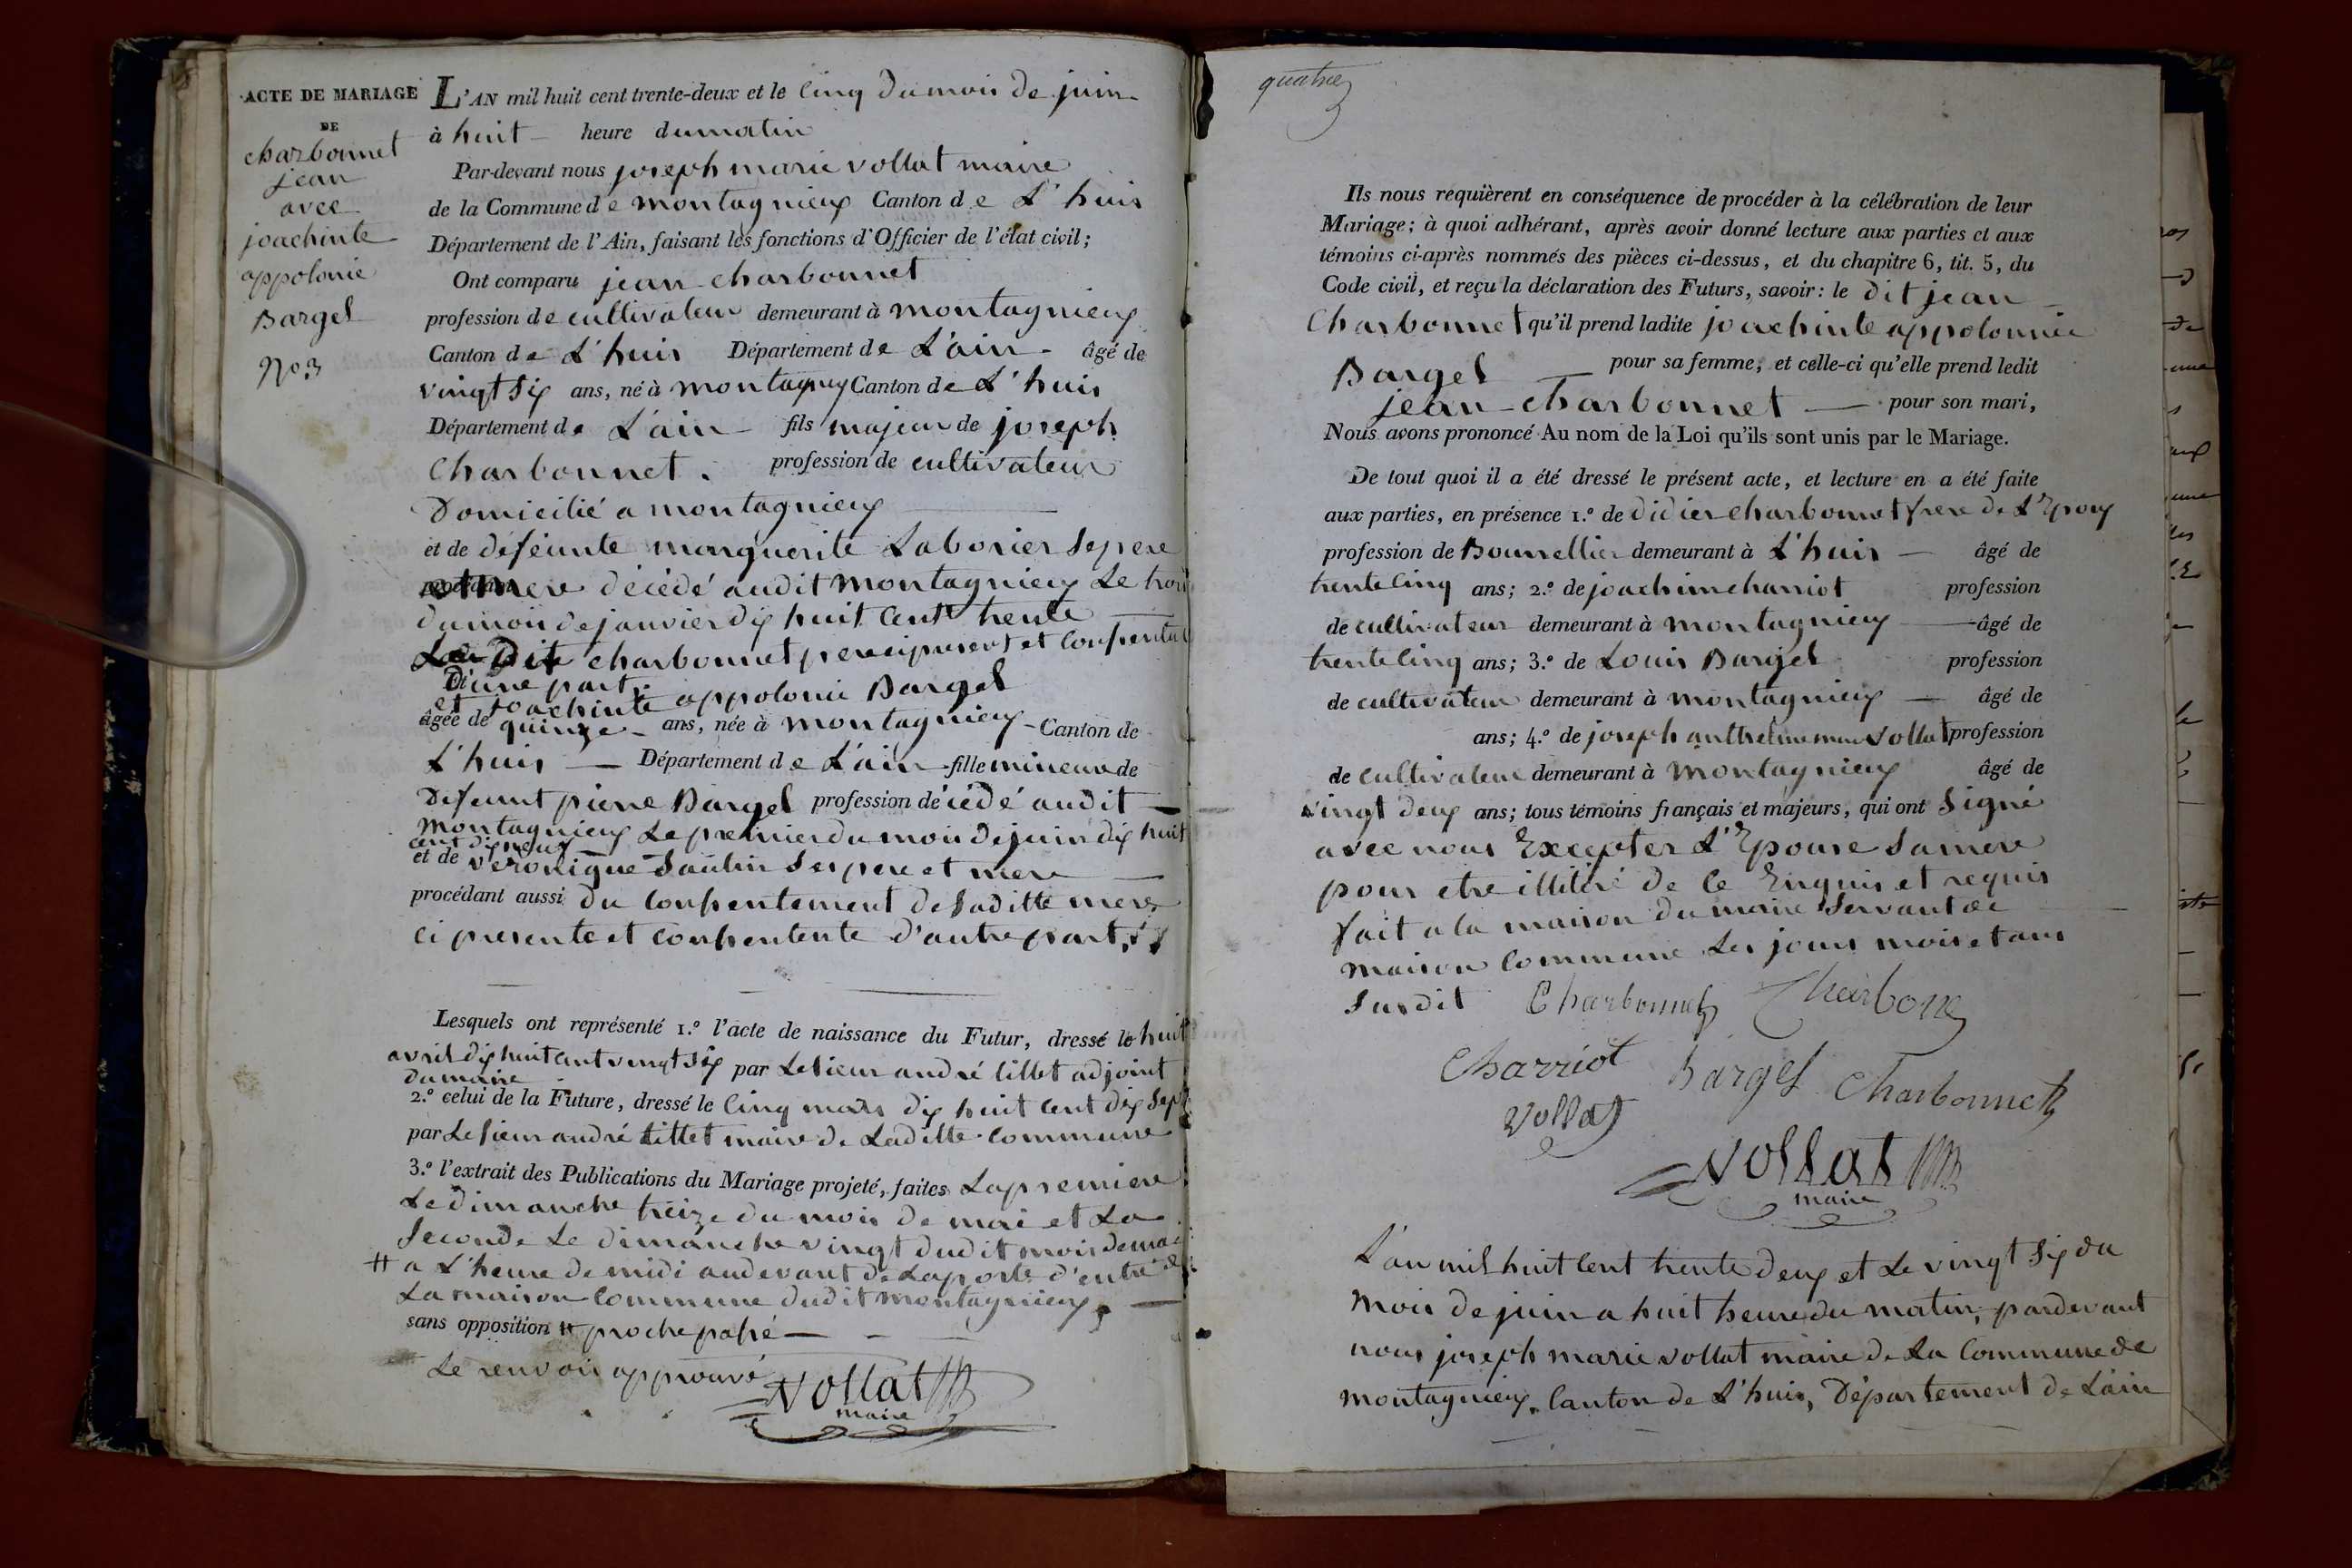 ACTE DE MARIAGE
DE
charbonnet
jean
avec
joachinte
appolonie
Bargel
No 3
L'AN mil huit cent trente-deux et le cinq du mois de juin
à huit heure du matin
Par-devant nous joseph marie vollat maire
de la Commune de montagnieux Canton de L'huis
Département de l'Ain, faisant les fonctions d'Officier de l'état civil;
Ont comparu jean charbonnet
profession de cultivateur demeurant à montagnieux
Canton de L'huis Département de L'ain âgé de
vingt six ans, né à Canton de L'huis
Département de L'ain fils majeur de joseph
charbonnet. profession de cultivateur
Domicilié a montagnieux
et de défeunte marguerite Laborier se pere
et mere décédé audit montagnieux Le trois
du mois de janvier dix huit cent trente
Dit charbonnet pere ci present et
D'une part.
et joachinte appolonie Bargel
âgée de quinze ans, née à montagnieux Canton de
L'huis Département de L'ain fille mineure de
Defeunt piere Bargel profession décédé audit
montagnieux Le premier du mois de juin dix huit
cent dix neuf
et de veronique Saulin ses pere et mere
procédant aussi du consentement de sa ditte mere
ci presente et consentente d'autre part.
Lesquels ont représenté 1.º l'acte de naissance du Futur, dressé le huit
avril dix huit cent vingt six par Le sieur andré tillet adjoint
du maire
2.º celui de la Future, dressé le cinq mars dix huit cent dix sept
par Le sieur andré tillet maire de Laditte commune
3.º l'extrait des Publications du Mariage projeté, faites La premiere
Le dimanche treize du mois de mai et La
seconde Le dimanche vingt dudit mois de mai
# a L'heure de midi audevant de La porte d'entré de
La maison commune dudit montagnieux.
sans opposition # proche passé
Le renvoi approuvé
Vollat
maire
quatre
Ils nous requièrent en conséquence de procéder à la célébration de leur
Mariage; à quoi adhérant, après avoir donné lecture aux parties et aux
témoins ci-après nommés des pièces ci-dessus, et du chapitre 6, tit. 5, du
Code civil, et reçu la déclaration des Futurs, savoir: le dit jean
Charbonnet qu'il prend ladite joachinte appolonnie
Bargel pour sa femme, et celle-ci qu'elle prend ledit
jean charbonnet pour son mari,
Nous avons prononcé Au nom de la Loi qu'ils sont unis par le Mariage.
De tout quoi il a été dressé le présent acte, et lecture en a été faite
aux parties, en présence 1.º de didier charbonnet frere de L'Epoux
profession de Bourrellier demeurant à L'huis âgé de
trente cinq ans; 2.º de joachim charriot profession
de cultivateur demeurant à montagnieux âgé de
trente cinq ans; 3.º de Louis Bargel profession
de cultivateur demeurant à montagnieux âgé de
ans; 4.º de joseph vollat profession
de cultivateur demeurant à montagnieux âgé de
vingt deux ans; tous témoins français et majeurs, qui ont signé
avec nous Excepter L'Epouse sa mere
pour etre illitéré de ce Enquis et requis
fait a la maison du maire servant de
maison commune Les jours mois et ans
susdit Charbonnet Charbonne
Charriot Bargel Charbonnet
Vollat
Vollat
maire
L'an mil huit cent trente deux et Le vingt six du
mois de juin a huit heure du matin, pardevant
nous joseph marie vollat maire de La commune de
montagnieux, canton de L'huis, Département de L'ain